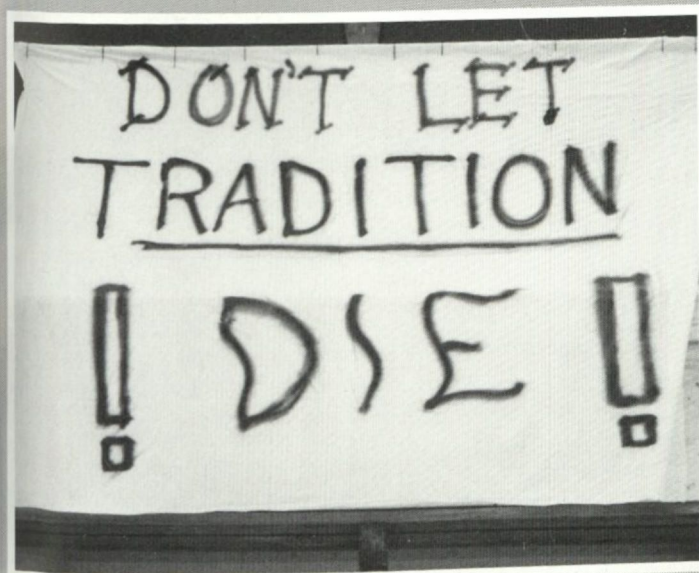 DON'T LET
TRADITION
! DIE !